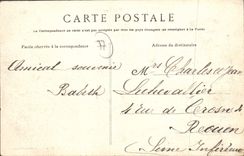 CARTE POSTALE
La Correspondance au verso n'est pas acceptée par tous les pays étrangers
Partie réservée à la correspondance
Adresse du destinataire
Amical souvenir
Babeth
Mrs Charles et Jean
4 rue de Crosne
Rouen
Seine Inférieure